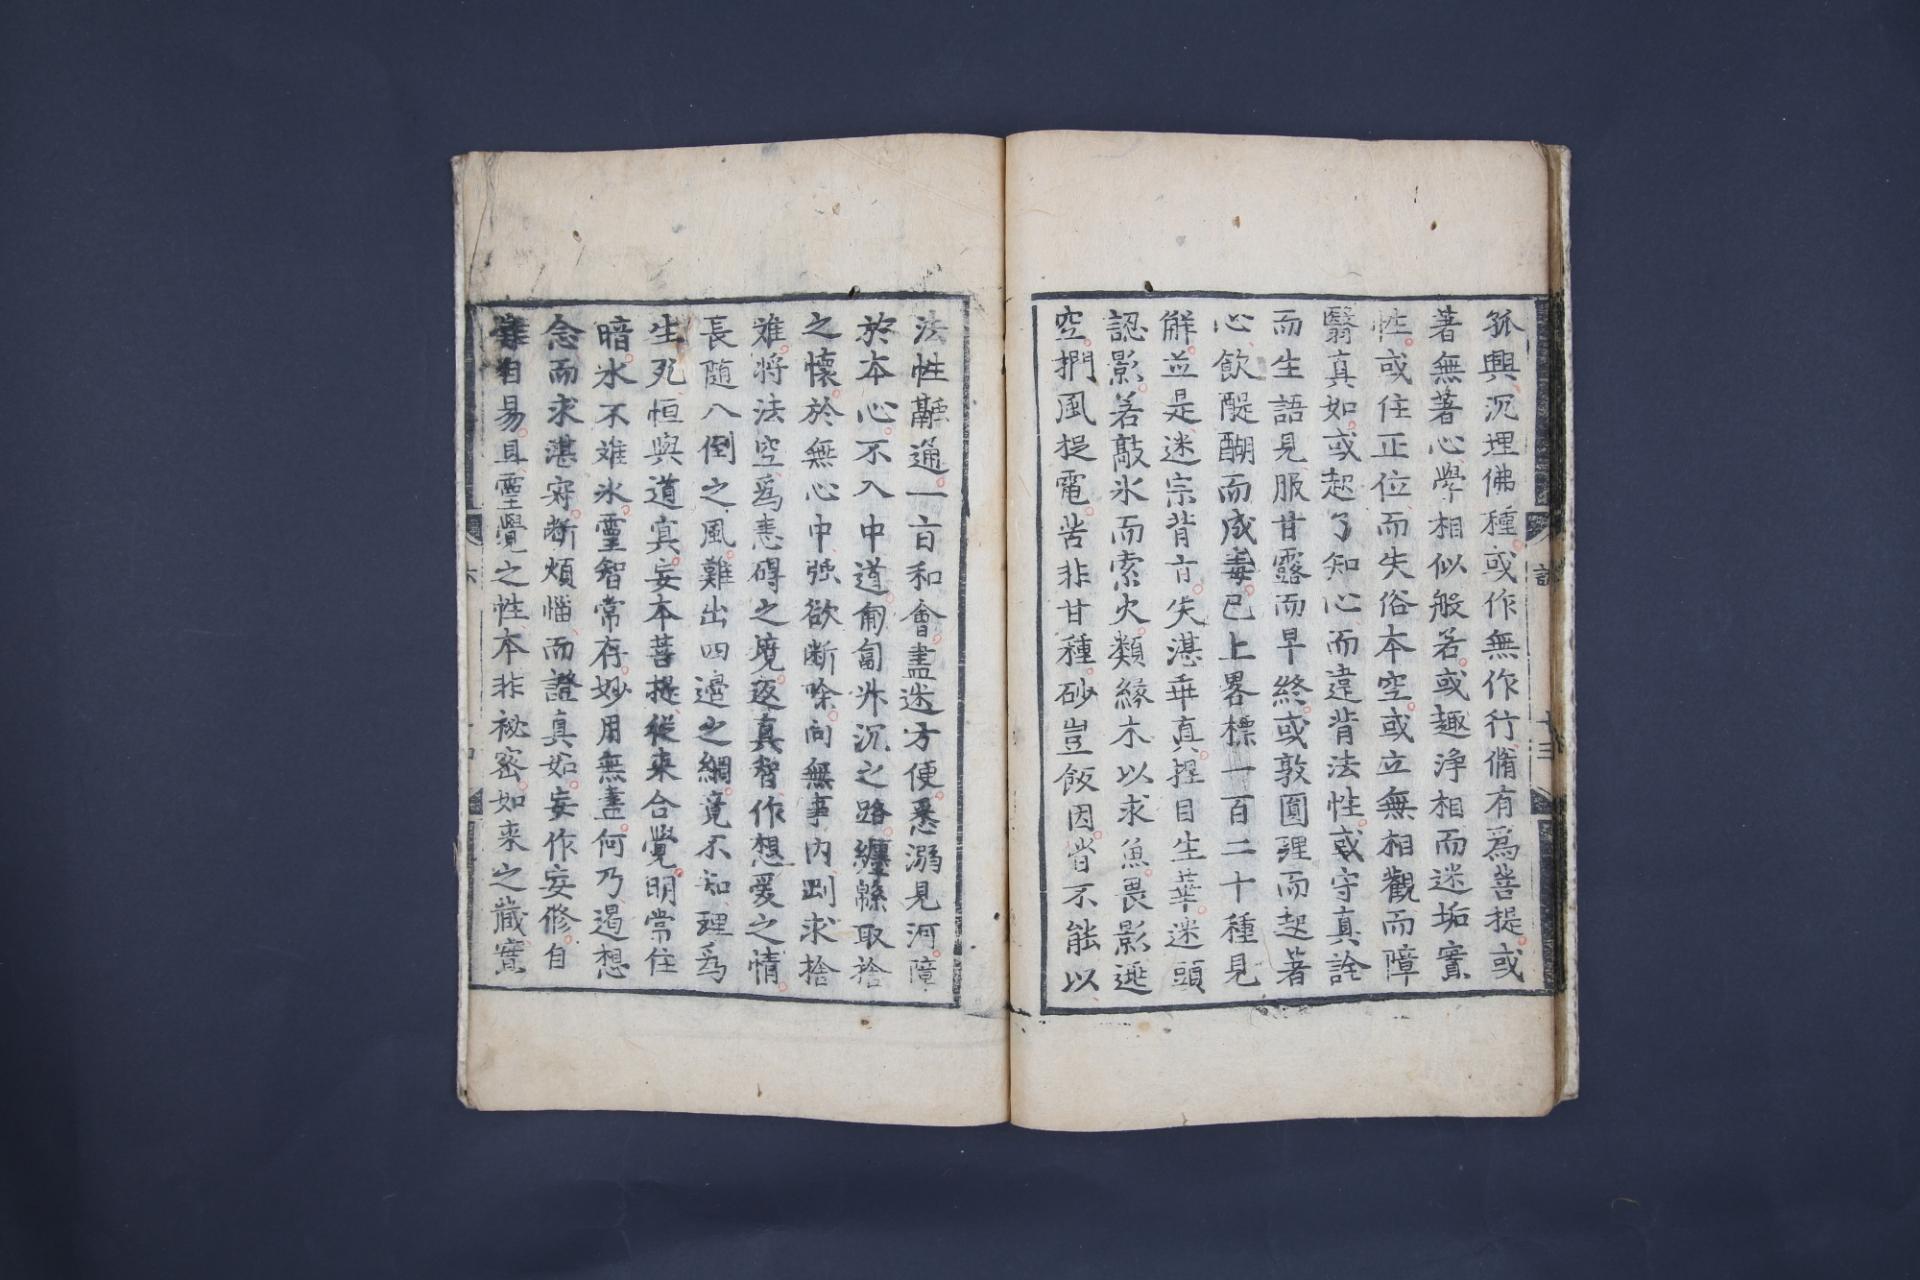 孤興沉埋佛種或作無作行脩有爲菩提或
著無著心學相似般若或趣淨相而迷垢實
性或住正位而失俗本空或立無相觀而障
翳真如或起了知心而違背法性或守真詮
而生語見服甘露而早終或敦圓理而起著
心飲醍醐而成毒已上畧標一百二十種見
解並是迷宗背㫖失湛乖真捏目生華迷頭
認影若敲氷而索火類緣木以求魚畏影逃
空捫風捉電苦非甘種砂豈飯因皆不能以
法性融通一㫖和會盡迷方便悉溺見河障
於本心不入中道匍匐升沉之路纏緜取捨
之懷於無心中強欲断除向無事内剛求捨
離將法空爲恚碍之境返真智作想愛之情
長随八倒之風難出四邊之網竟不知理爲
生死恒與道㝠妄本菩提從来合覺明常住
暗水不離氷靈智常存妙用無盡何乃遏想
念而求湛寂断煩惱而證真如妄作妄修自
難自易且靈覺之性本非祕密如来之蔵實
六
十四
訣
十三